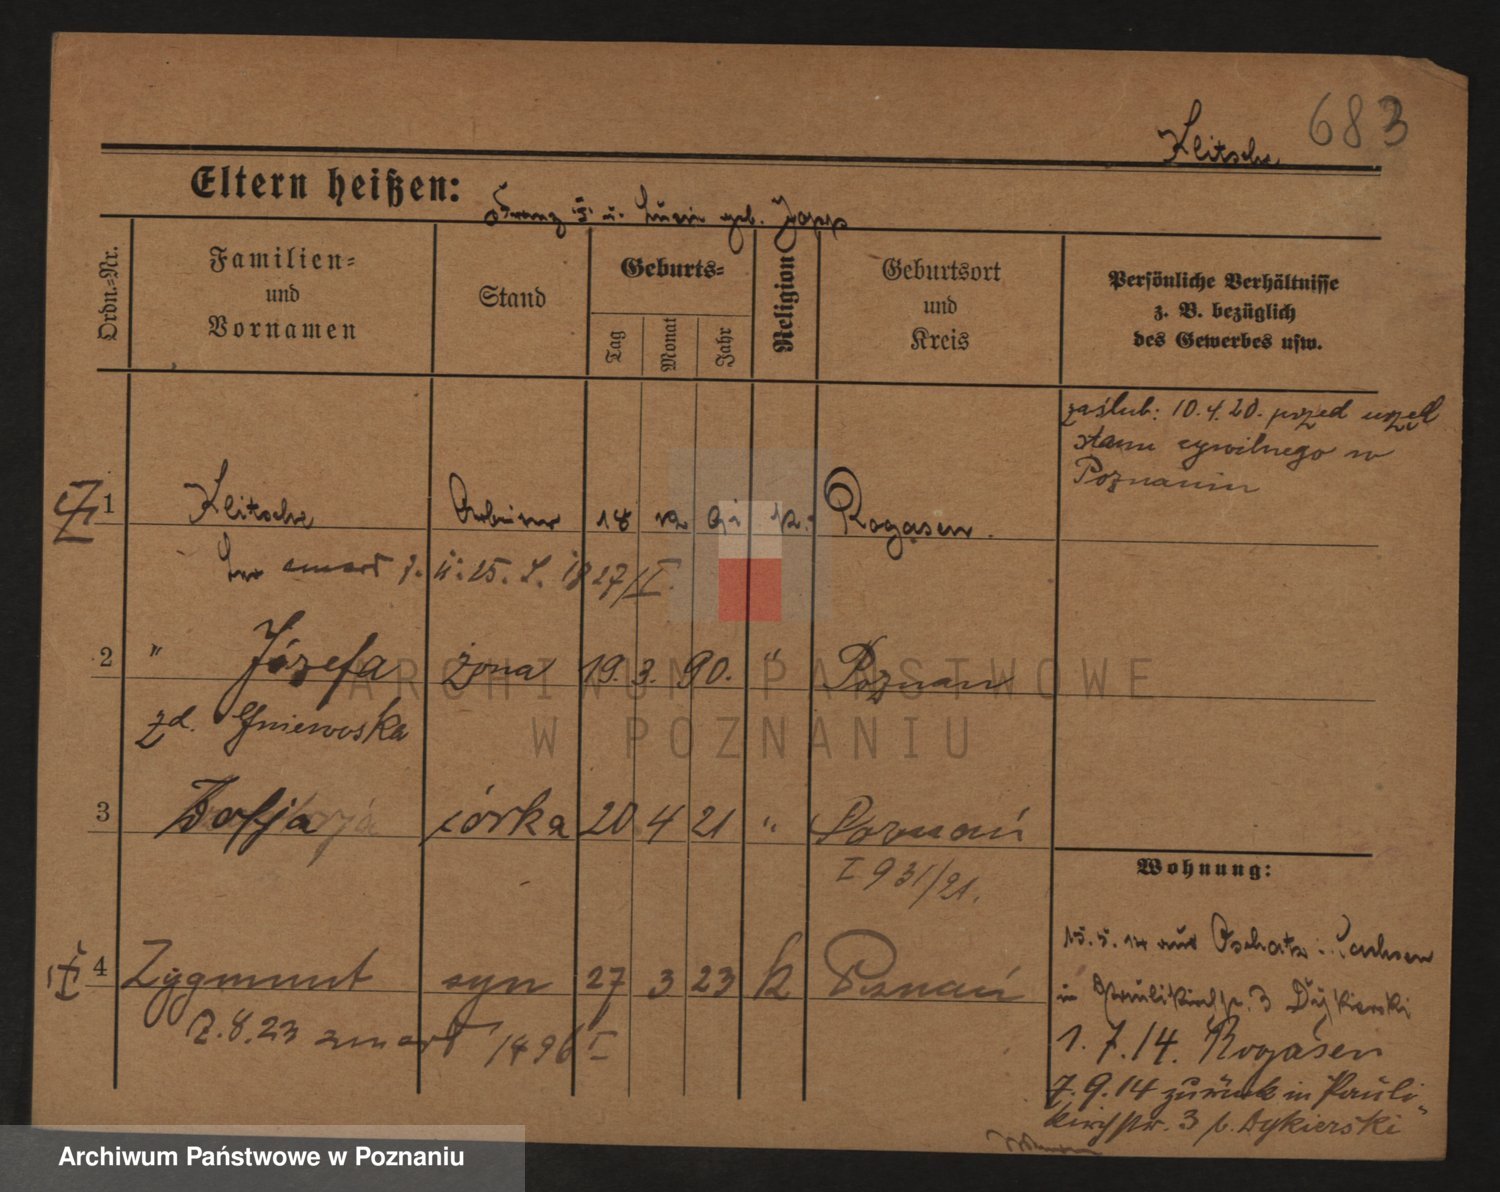 683
Klitsche
Eltern heißen: Franz u. geb.
Ordn.-Nr.
Familien- und Vornamen
Stand
Geburts-
Tag
Monat
Jahr
Religion
Geburtsort und Kreis
Persönliche Verhältnisse z. B. bezüglich des Gewerbes usw.
zaślub: 10.4.20. przed urzęd
stanu cywilnego w
Poznaniu
1 Klitsche 18 k. Rogasen.
zmarł 25. 27/I.
2 " Józefa żona 19. 3. 90. " Poznań
zd. Gniewoska
3 Zofja córka 20 4 21 " Poznań
I 931/21.
Wohnung:
15.5.14 aus Oschatz Sachsen
in Paulikirchstr. 3 Dykierski
4 Zygmunt syn 27 3 23 k Poznań
7.8.23 zmarł 1496 I
1.7.14. Rogasen
7.9.14 zurück in Pauli-
kirchstr. 3 b. Dykierski
ARCHIWUM PAŃSTWOWE
W POZNANIU
Archiwum Państwowe w Poznaniu